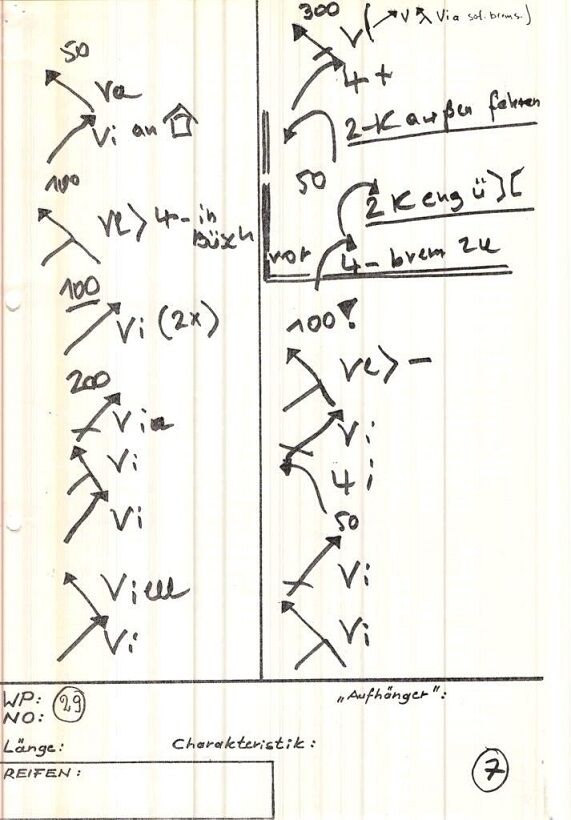 50
va
Vi an
100
ve > 4- in
100
Vi (2x)
200
Via
Vi
Vi
Vi
Vi
300
V ( V Via sol. brems. )
4+
2-K außen fahren
50
2 K eng ü
vor 4- brem 2K
100!
ve > -
Vi
4 i
50
Vi
Vi
WP: 29
NO:
„Aufhänger":
Länge:
Charakteristik:
REIFEN:
7